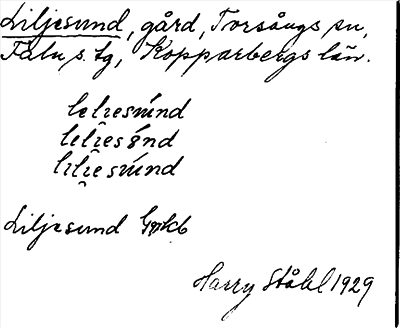 Liljesund, gård, Torsångs sn,
Falu s. tg, Kopparbergs län.
leliesúnd
leliesšnd
liliesúnd
Liljesund Gpkb
Harry Ståhl 1929